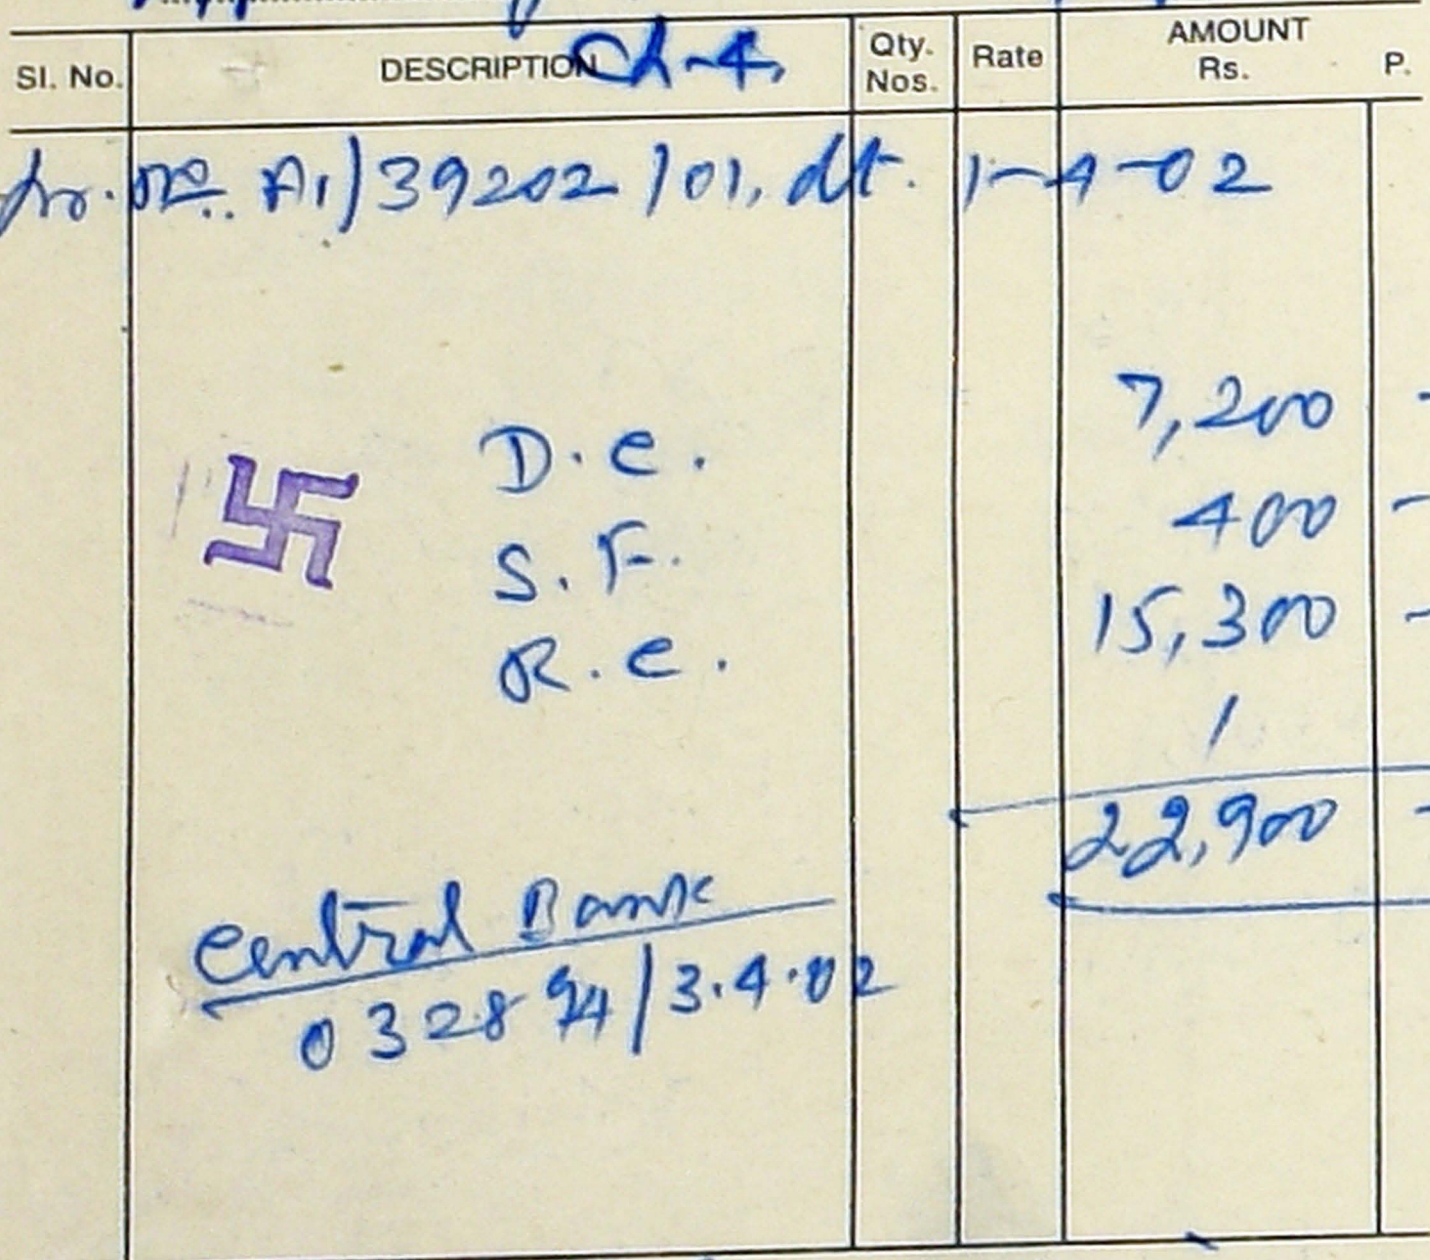 Sl. No. DESCRIPTION Qty. Nos. Rate AMOUNT Rs. P.
Ch-4,
No. A1)39202/01, dt. 1-4-02
D.C. 7,200 -
S.F. 400 -
R.C. 15,300 -
22,900 -
Central Bank
032894/3.4.02